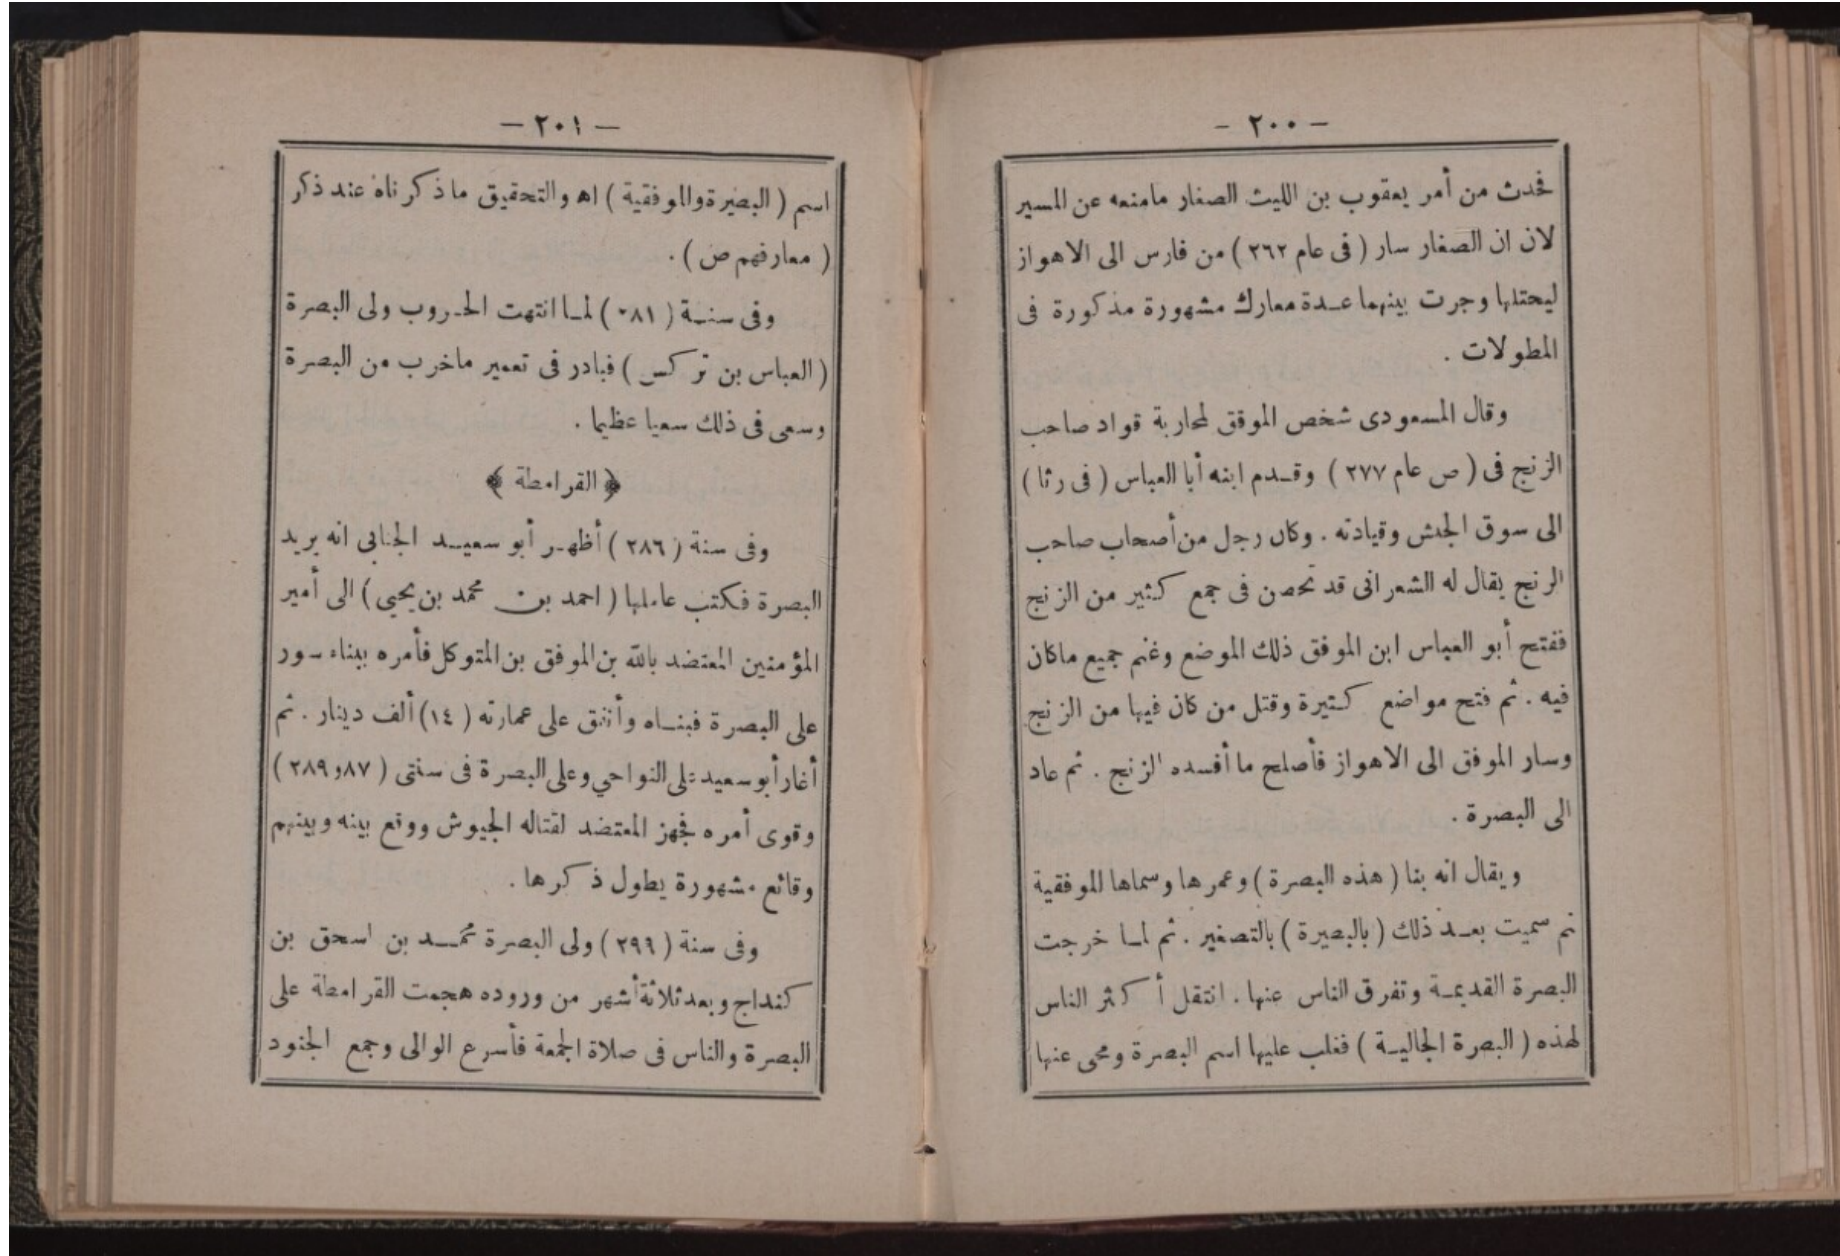 — ٢٠٠ —
فحدث من أمر يعقوب بن الليث الصفار مامنعه عن المسير
لان ان الصفار سار ( فى عام ٢٦٢ ) من فارس الى الاهواز
ليحتلها وجرت بينهما عدة معارك مشهورة مذكورة فى
المطولات .
وقال المسعودى شخص الموفق لمحاربة قواد صاحب
الزنج فى ( ص عام ٢٧٧ ) وقدم ابنه أبا العباس ( فى رثا )
الى سوق الجيش وقيادته . وكان رجل من أصحاب صاحب
الزنج يقال له الشعرانى قد تحصن فى جمع كثير من الزنج
ففتح أبو العباس ابن الموفق ذلك الموضع وغنم جميع ماكان
فيه . ثم فتح مواضع كثيرة وقتل من كان فيها من الزنج
وسار الموفق الى الاهواز فأصلح ما أفسده الزنج . ثم عاد
الى البصرة .
ويقال انه بنا ( هذه البصرة ) وعمرها وسماها الموفقية
ثم سميت بعد ذلك ( بالبصيرة ) بالتصغير . ثم لما خرجت
البصرة القديمة وتفرق الناس عنها . انتقل أكثر الناس
لهذه ( البصرة الحالية ) فغلب عليها اسم البصرة ومحى عنها
— ٢٠١ —
اسم ( البصيرة والموفقية ) اه والتحقيق ماذكرناه عند ذكر
( معارفهم ص ) .
وفى سنة ( ٢٨١ ) لما انتهت الحروب ولى البصرة
( العباس بن تركس ) فبادر فى تعمير ماخرب من البصرة
وسعى فى ذلك سعيا عظيما .
﴿ القرامطة ﴾
وفى سنة ( ٢٨٦ ) أظهر أبو سعيد الجنابى انه يريد
البصرة فكتب عاملها ( احمد بن محمد بن يحيى ) الى أمير
المؤمنين المعتضد بالله بن الموفق بن المتوكل فأمره ببناء سور
على البصرة فبناه وأنفق على عمارته ( ١٤ ) ألف دينار . ثم
أغار أبو سعيد على النواحي وعلى البصرة فى سنتى ( ٨٧ و ٢٨٩ )
وقوى أمره فجهز المعتضد لقتاله الجيوش ووقع بينه وبينهم
وقائع مشهورة يطول ذكرها .
وفى سنة ( ٢٩٩ ) ولى البصرة محمد بن اسحق بن
كنداج وبعد ثلاثة أشهر من وروده هجمت القرامطة على
البصرة والناس فى صلاة الجمعة فأسرع الوالى وجمع الجنود